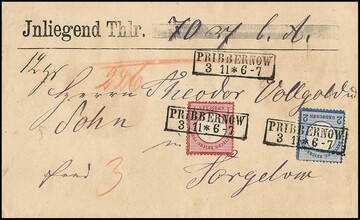 Jnliegend Thlr. 70
PRIBBERNOW
3 11*6-7
296
Herrn Theodor Vollgold u
Sohn
PRIBBERNOW
3 11*6-7
PRIBBERNOW
3 11*6-7
in
3
Torgelow